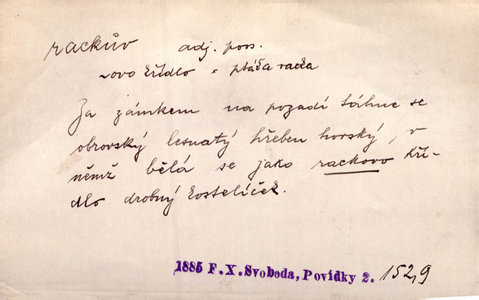 rackův adj. pos.
-ovo křídlo = ptáka racka
Za zámkem na pozadí táhne se
obrovský lesnatý hřeben horský, v
němž bělá se jako rackovo kří-
dlo drobný kostelíček.
1885 F. X. Svoboda, Povídky 2. 152,9